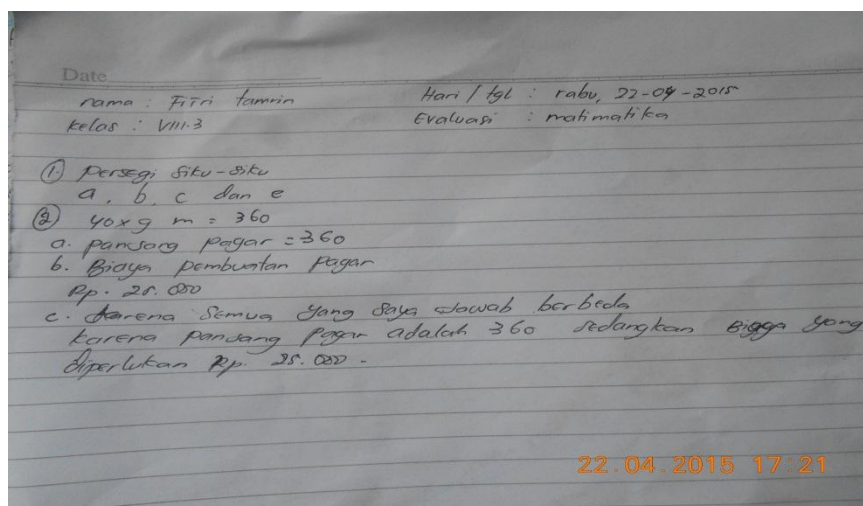 Date
nama : Fitri tamrin Hari / tgl : rabu, 22-04-2015
Kelas : VIII.3 Evaluasi : matimatika
① Persegi siku-siku
a, b, c dan e
② 40x9 m = 360
a. panjang pagar = 360
b. Biaya pembuatan pagar
Rp. 25.000
c. Karena semua yang saya jawab berbeda
karena panjang pagar adalah 360 sedangkan yang
diperlukan Rp. 25.000.
22.04.2015 17:21